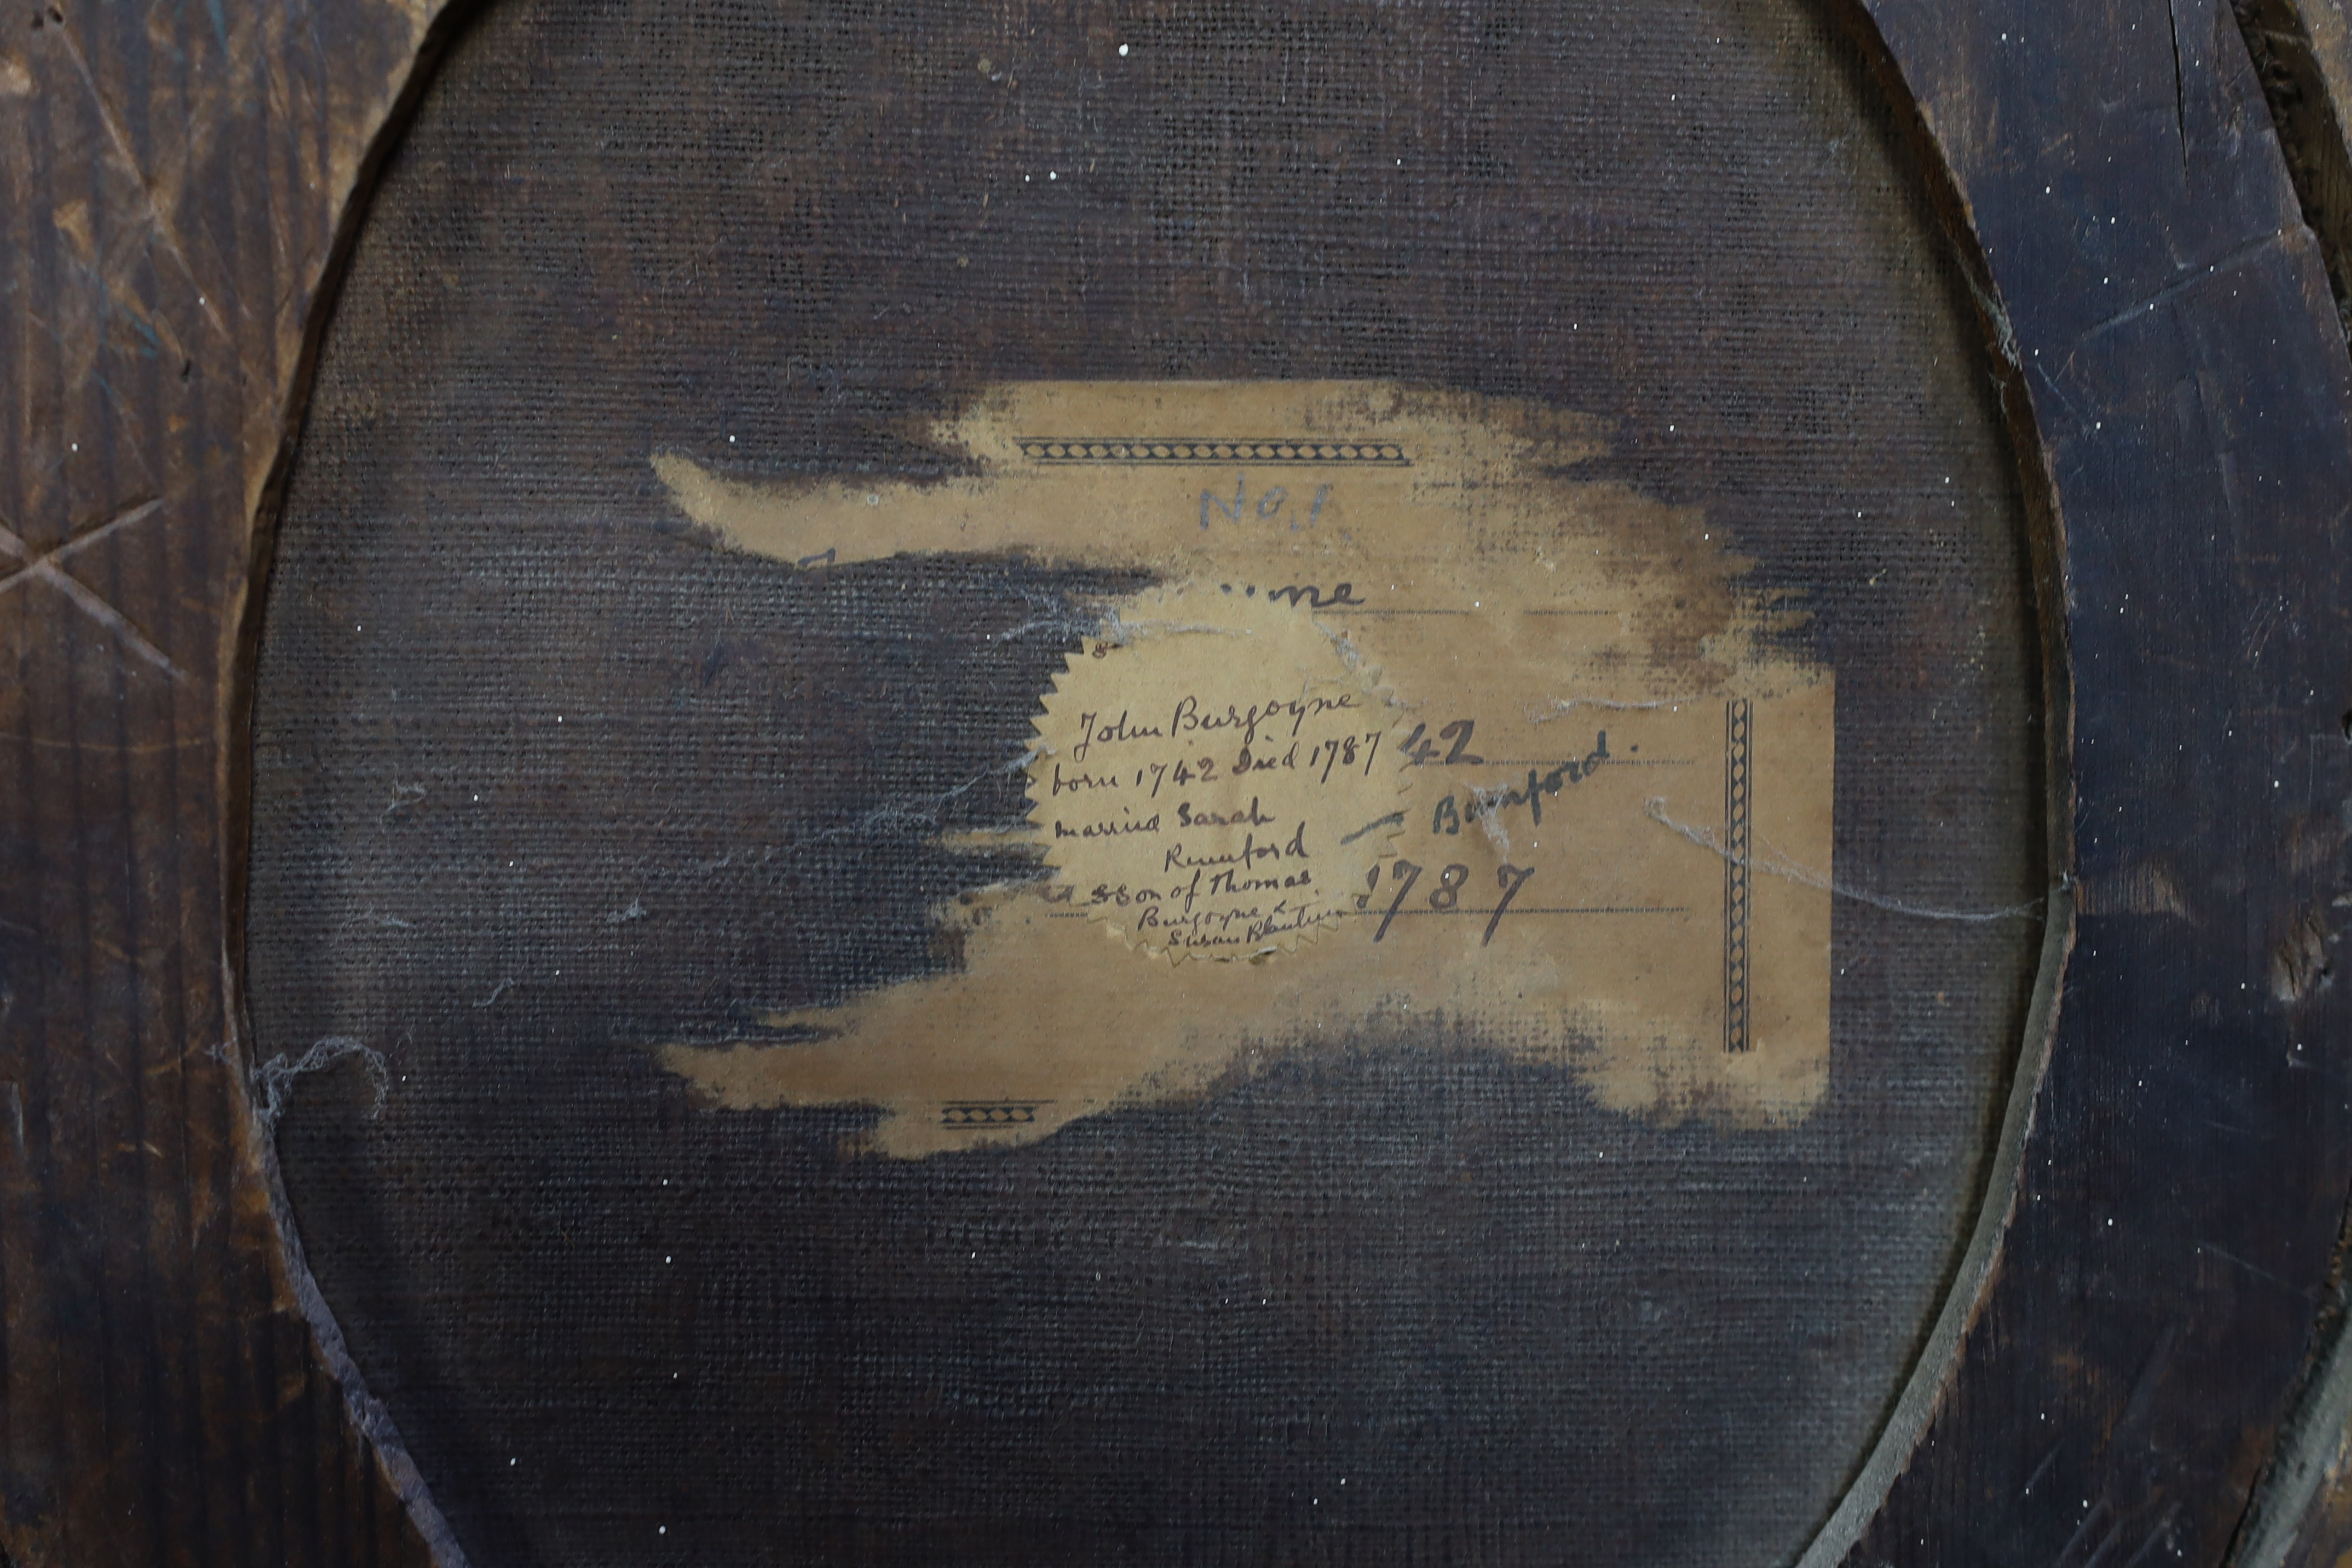 No. 1
me
John Burgoyne
born 1742 Died 1787
42
married Sarah
Rumford
Bumford.
& Son of Thomas
1787
Burgoyne &
Susan